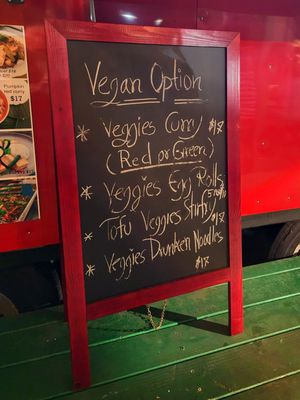 Pumpkin
red curry
$17
Vegan Option
* Veggies Curry $17
(Red or Green)
* Veggies Egg Rolls
* Tofu Veggies Stirfry $17
* Veggies Drunken Noodles
$17